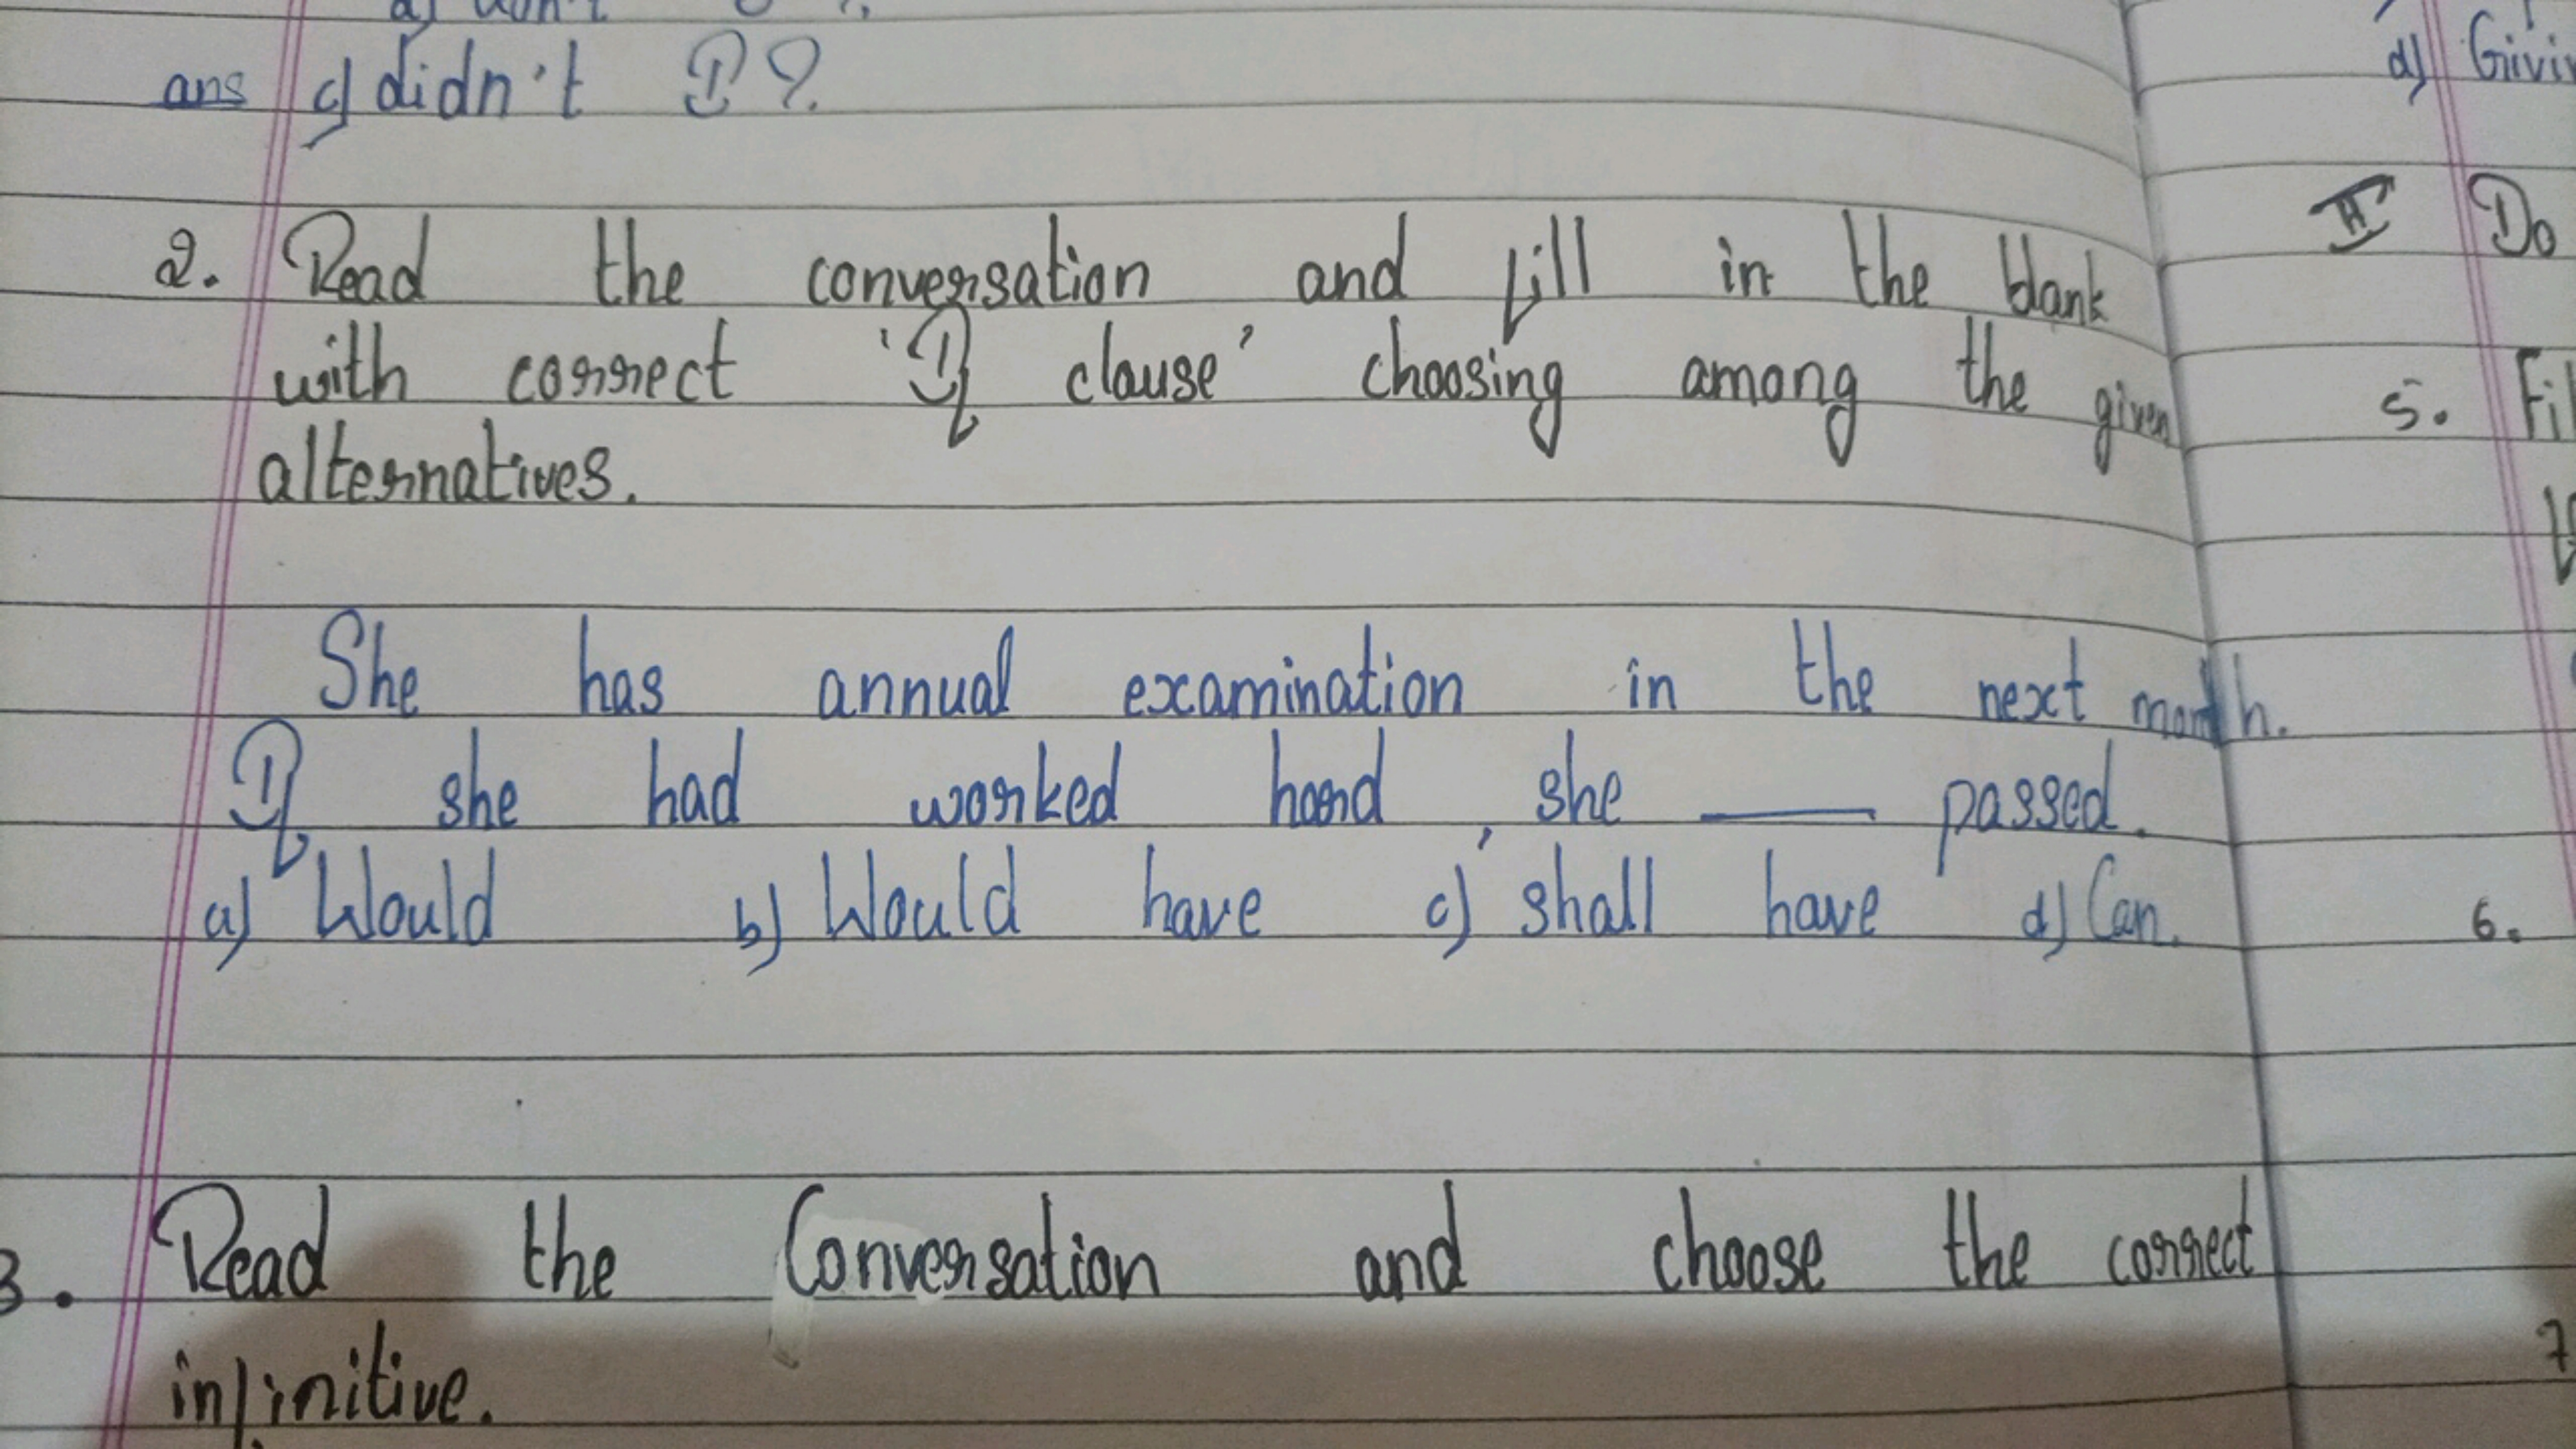 ans c) didn't I?
2. Read the conversation and fill in the blank
with correct 'If clause' choosing among the given
alternatives.
She has annual examination in the next month.
If she had worked hard, she ____ passed.
a) Would b) Would have c) shall have d) Can.
3. Read the Conversation and choose the correct
infinitive.
d)
II Do
5.
6.
7